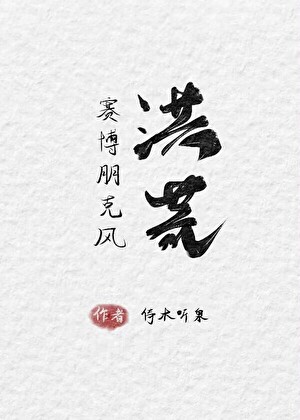 洪荒
赛博朋克风
作者 侍水听泉